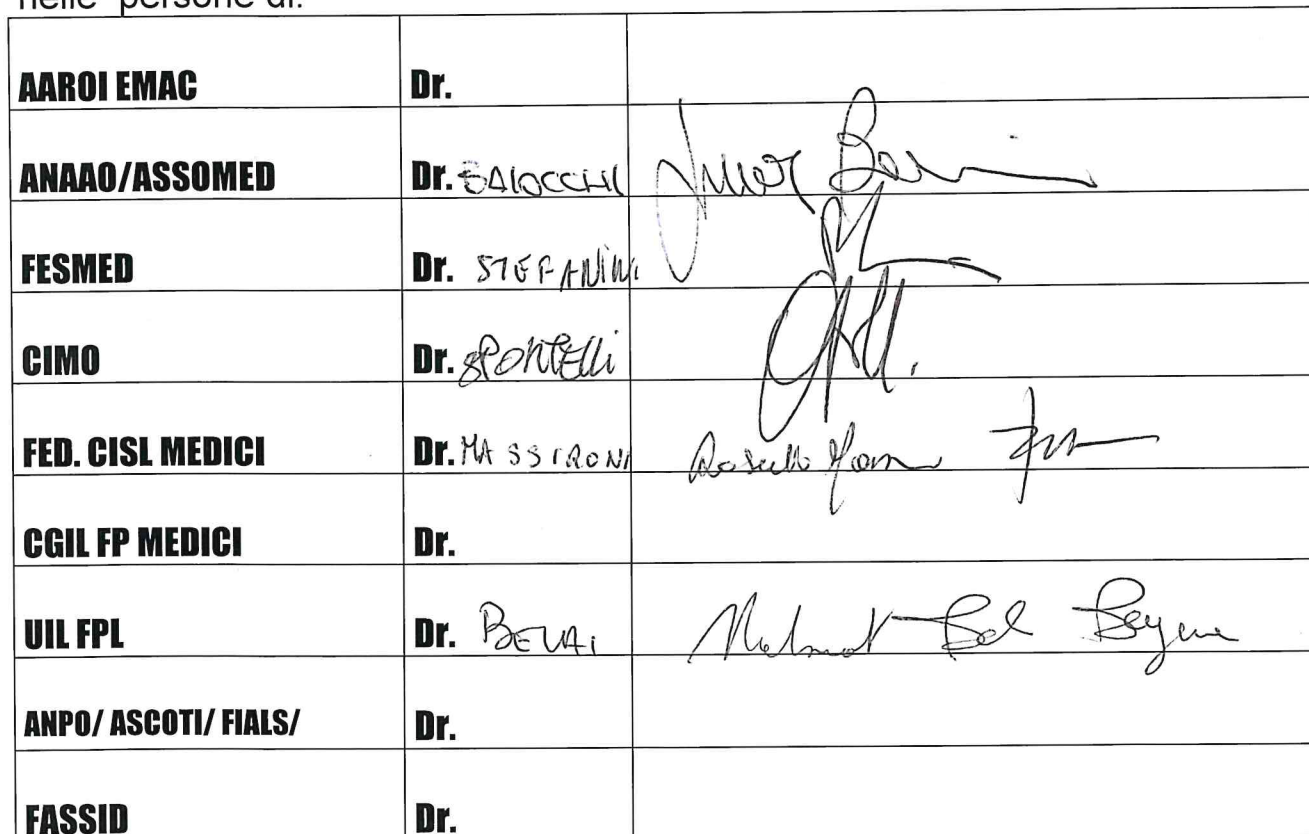 nelle persone di:
AAROI EMAC Dr.
ANAAO/ASSOMED Dr. BAIOCCHI
FESMED Dr. STEFANINI
CIMO Dr. SPONTELLI
FED. CISL MEDICI Dr. MASSIRONI
CGIL FP MEDICI Dr.
UIL FPL Dr.
ANPO/ ASCOTI/ FIALS/ Dr.
FASSID Dr.